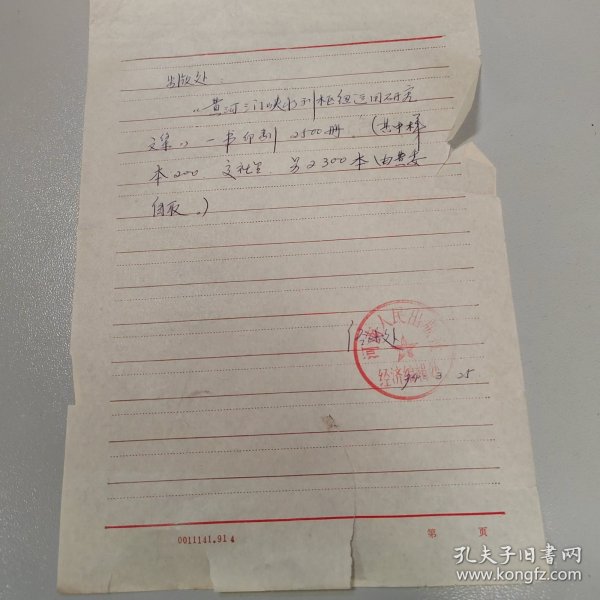 出版处：
《黄河三门峡水利枢纽运用研究
文集》一书印制 2500册。（其中样
本200 交社里 另2300本由黄委
自取。）
河 人民出版
经济编辑
经济处
94 3 25
0011141.914
第 页
孔夫子旧书网
www.kongfz.com